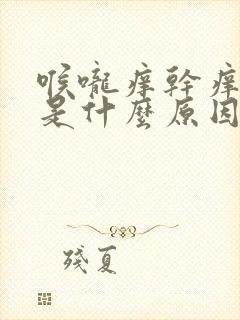 喉嚨痒幹痒
是什麼原因
殘夏